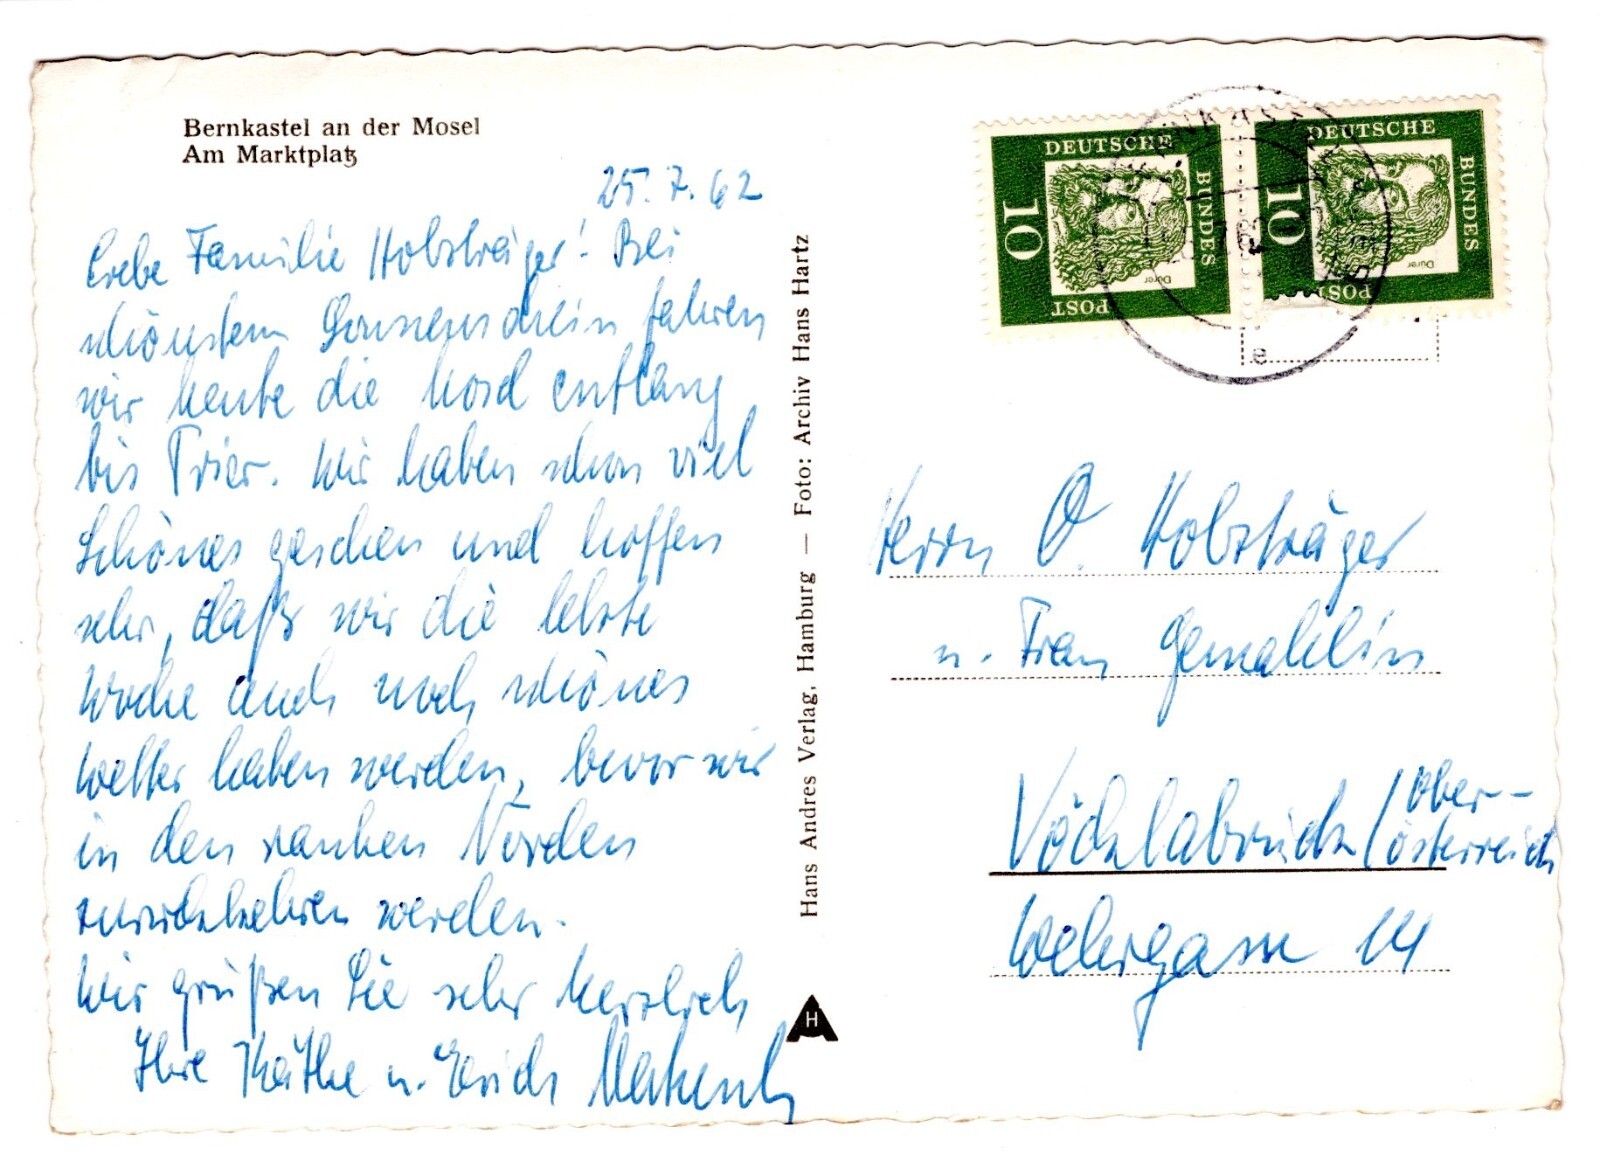 Bernkastel an der Mosel
Am Marktplatz
25.7.62
Liebe Familie Holzträger! Bei
schönstem Sonnenschein fahren
wir heute die Mosel entlang
bis Trier. Wir haben schon viel
Schönes gesehen und hoffen
sehr, daß wir die letzte
Woche auch noch schönes
Wetter haben werden, bevor wir
in den rauhen Norden
zurückkehren werden.
Wir grüßen Sie sehr herzlich
Ihre Käthe u. Erich
Hans Andres Verlag, Hamburg — Foto: Archiv Hans Hartz
H
DEUTSCHE BUNDES POST
10
Dürer
DEUTSCHE BUNDES POST
10
Dürer
e
Herrn O. Holzträger
u. Frau Gemahlin
Vöcklabruck / Ober-
österreich
Wehrgasse 14